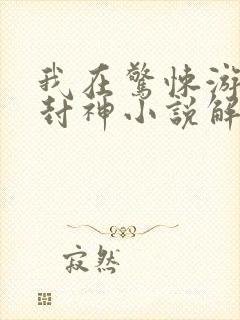 我在驚悚游
封神小說解
寂然